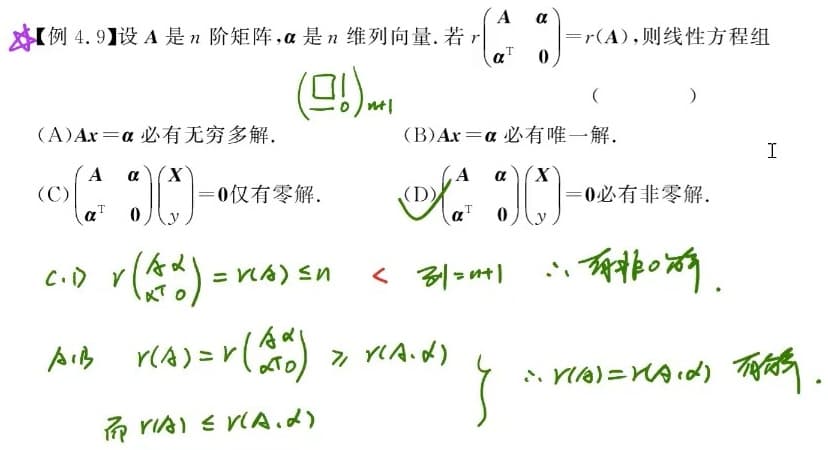 【例 4.9】设 A 是 n 阶矩阵,α 是 n 维列向量.若 r(A α; αᵀ 0)=r(A),则线性方程组
( )
(□| — 0)n+1
(A)Ax=α 必有无穷多解. (B)Ax=α 必有唯一解.
(C)(A α; αᵀ 0)(X; y)=0仅有零解. (D)(A α; αᵀ 0)(X; y)=0必有非零解.
C.D r(A α; αᵀ 0) = r(A) ≤ n < 列=n+1 ∴ 有非0解.
A.B r(A) = r(A α; αᵀ 0) ≥ r(A.α)
∴ r(A)=r(A.α) 有解.
而 r(A) ≤ r(A.α)